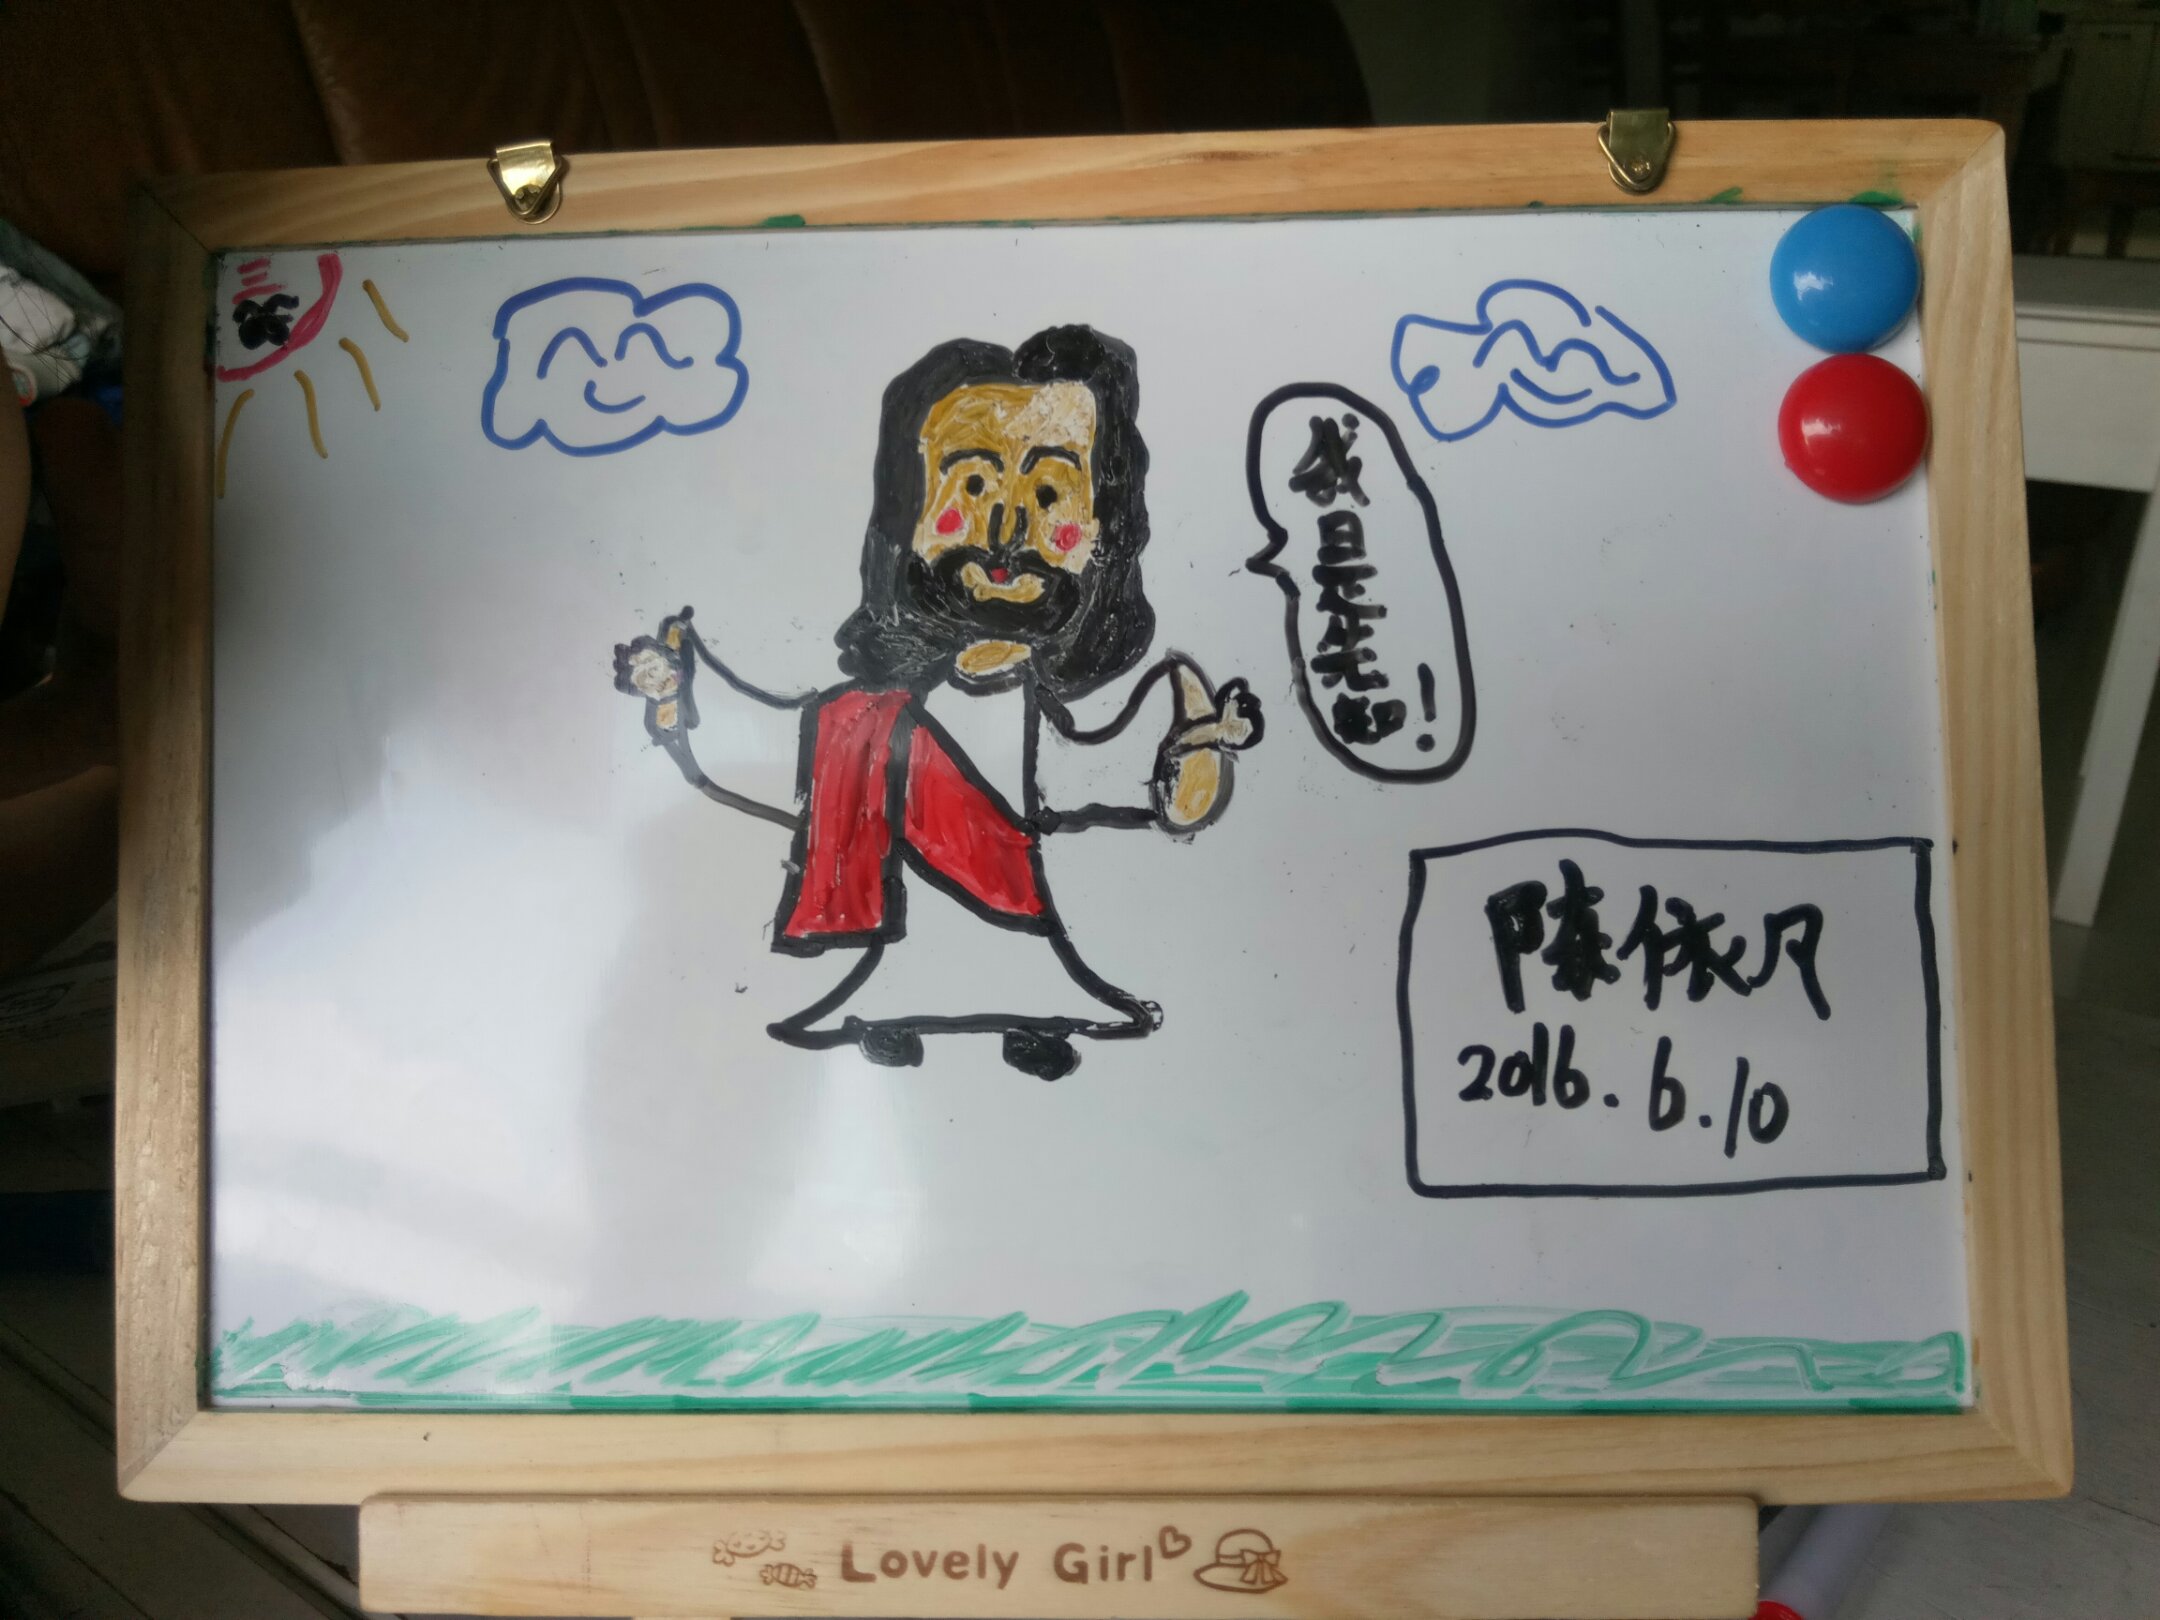 我是先知!
陳依凡
2016.6.10
Lovely Girl